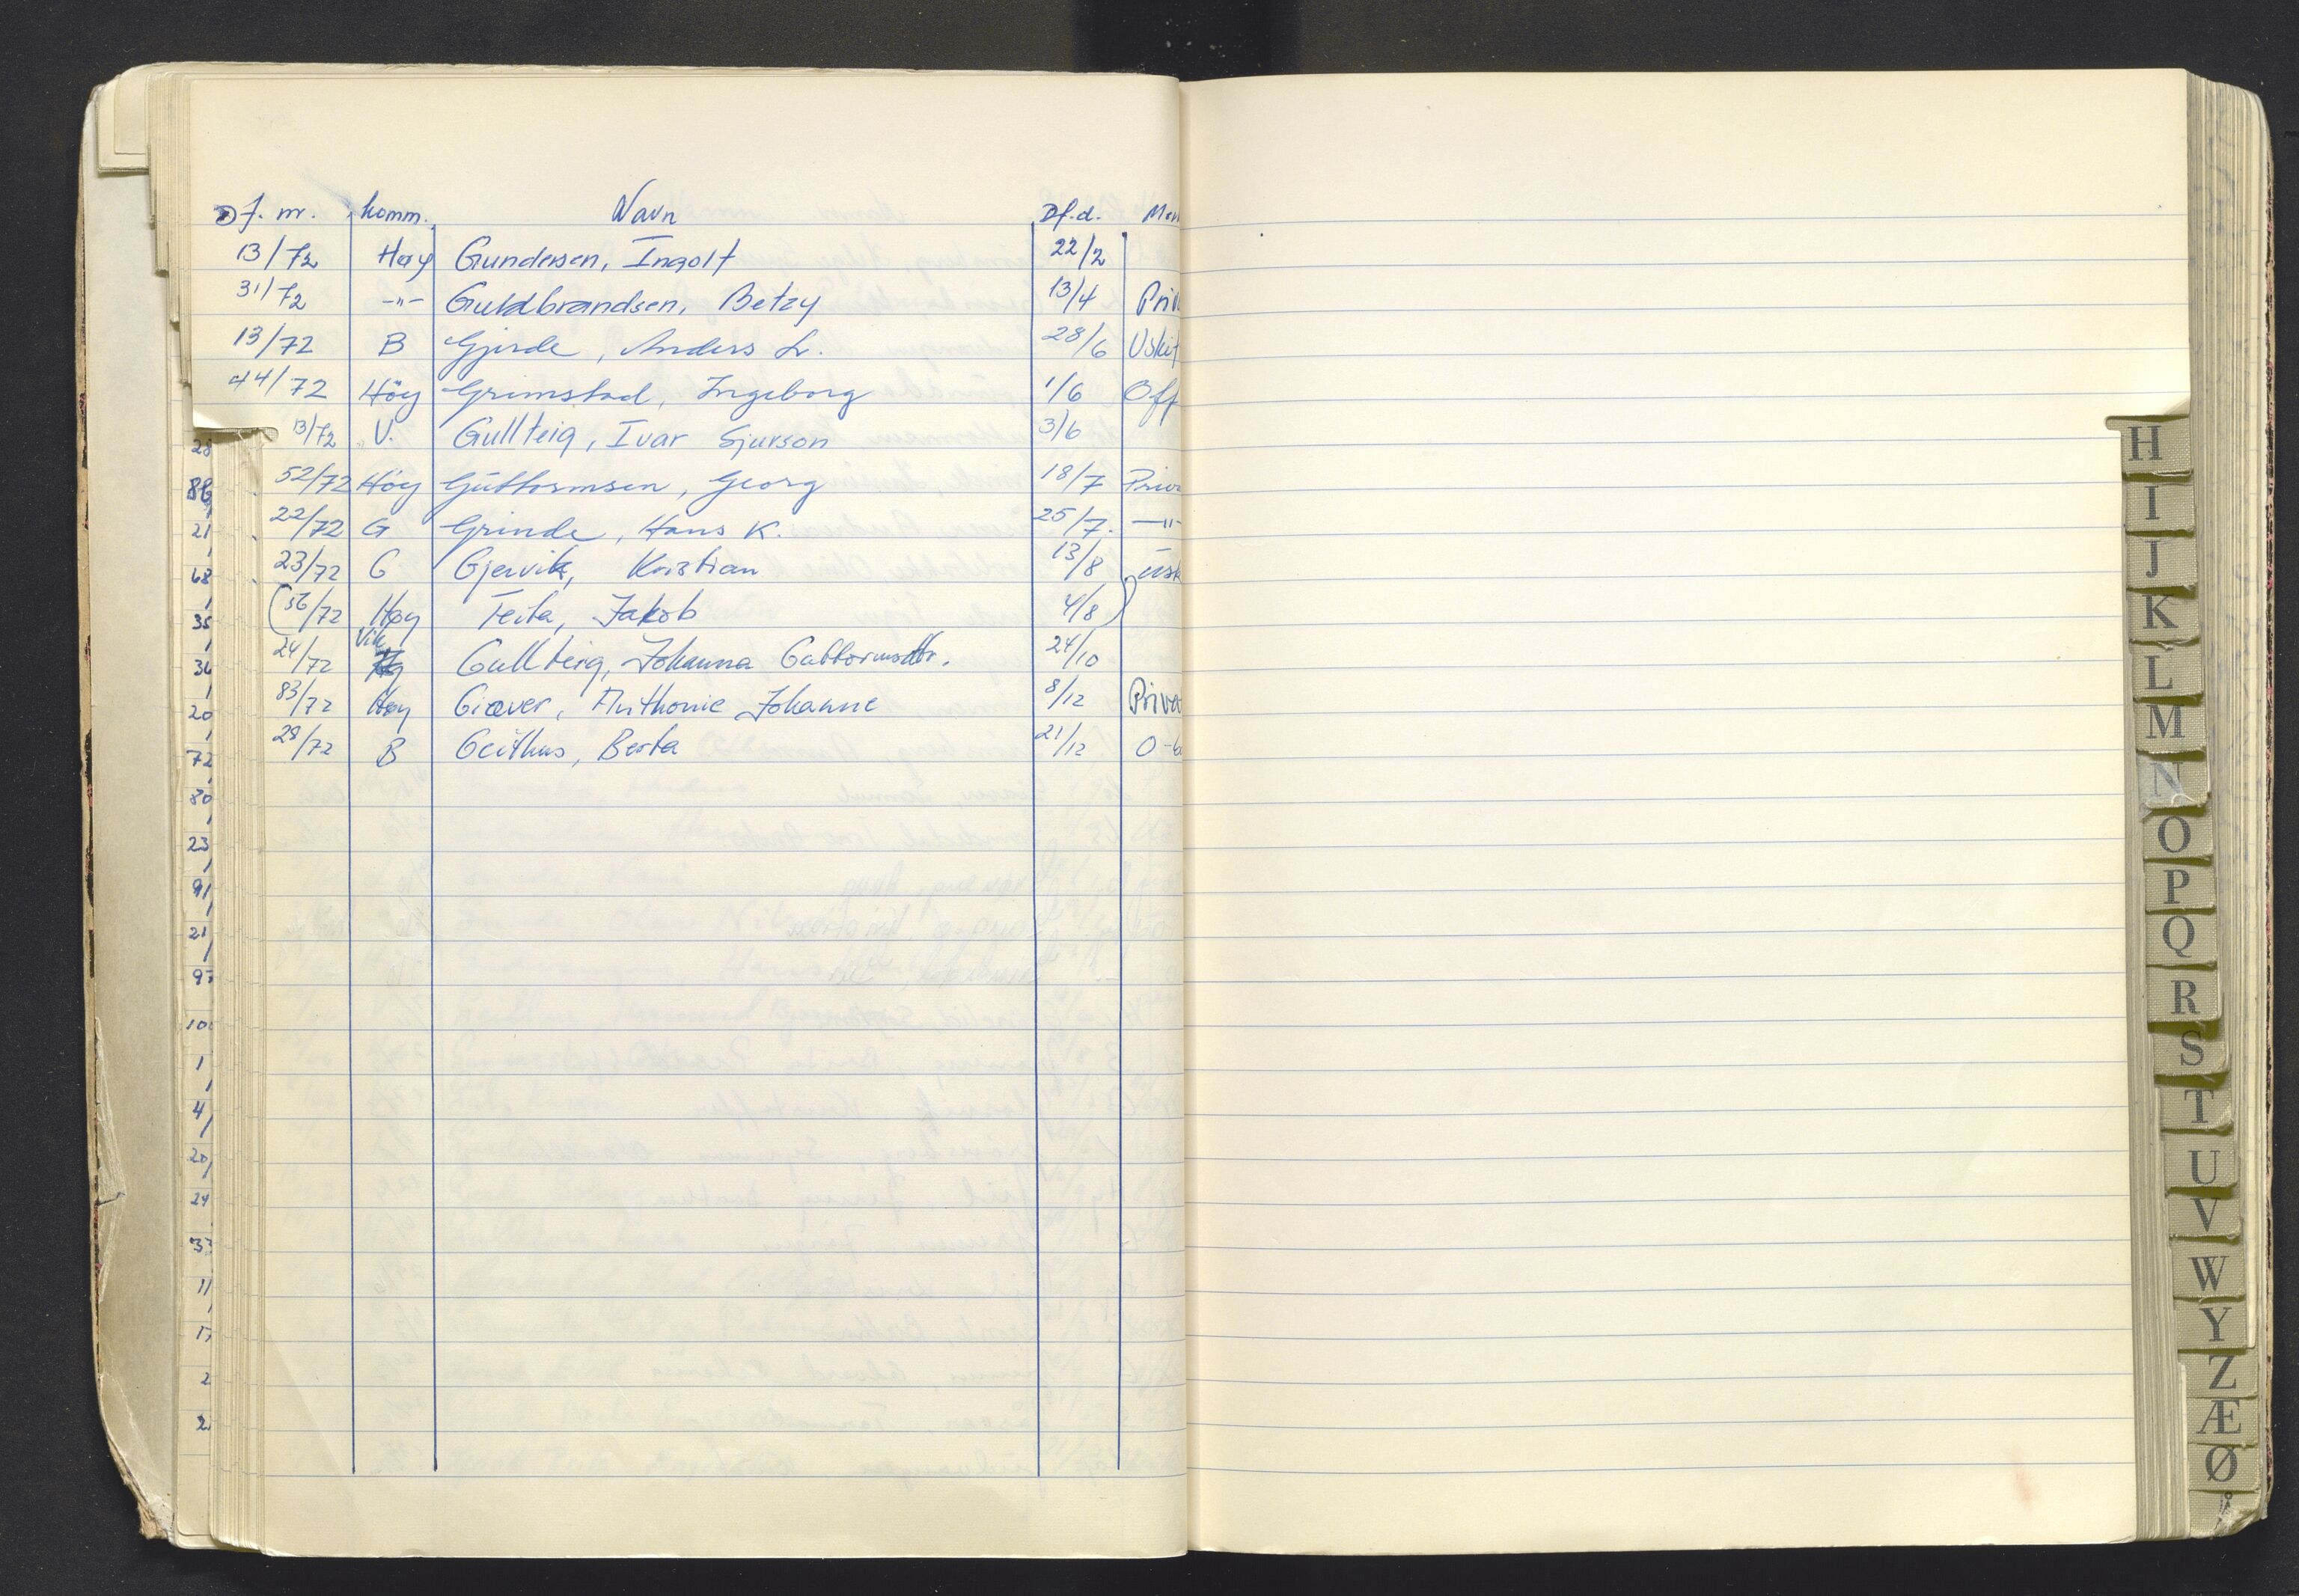 Df. nr. komm. Navn Df.d.
13/72 Høy Gundersen, Ingolf 22/2
31/72 -"- Guldbrandsen, Betzy 13/4 Priv
13/72 B Gjerde, Anders L. 28/6 Uskif
44/72 Höy Grimstad, Ingeborg 1/6 Off
13/72 V. Gullteig, Ivar Sjurson 3/6
52/72 Höy Guttormsen, Georg 18/7 Priv
22/72 G Grinde, Hans K. 25/7. -"-
23/72 G Gjervik, Kristian 13/8 Usk
(56/72 Høy Teita, Jakob 4/8)
24/72 Vik Gullteig, Johanna Guttormsdtr. 24/10
83/72 Høy Giæver, Anthonie Johanne 8/12 Priva
29/72 B Geithus, Berta 21/12
28
21
68
35
36
20
72
80
23
91
21
97
10
1
4
20
24
33
11
17
2
2
H
I
J
K
L
M
N
O
P
Q
R
S
T
U
V
W
Y
Z
Æ
Ø